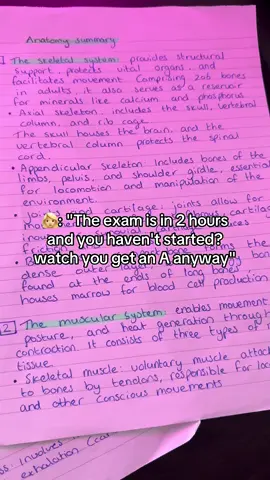 Anatomy summary
The skeletal system: provides structural
support, protects vital organs, and
facilitates movement. Comprising 206 bones
in adults, it also serves as a reservoir
for minerals like calcium and phosphorus
• Axial skeleton: includes the skull, vertebral
column, and rib cage.
The skull houses the brain, and the
vertebral column protects the spinal
cord.
• Appendicular skeleton: Includes bones of the
limbs, pelvis, and shoulder girdle, essential
for locomotion and manipulation of the
environment.
cartilage: joints allow for
👩🏼: "The exam is in 2 hours
and you haven't started?
watch you get an A anyway"
dense outer
found at the ends of long bones,
houses marrow for blood cell production
2 The muscular system: enables movement,
posture, and heat generation through
contraction. It consists of three types of
tissue.
• Skeletal muscle: voluntary muscle attach
to bones by tendons, responsible for loco
and other conscious movements
ss: Involves
exhalation